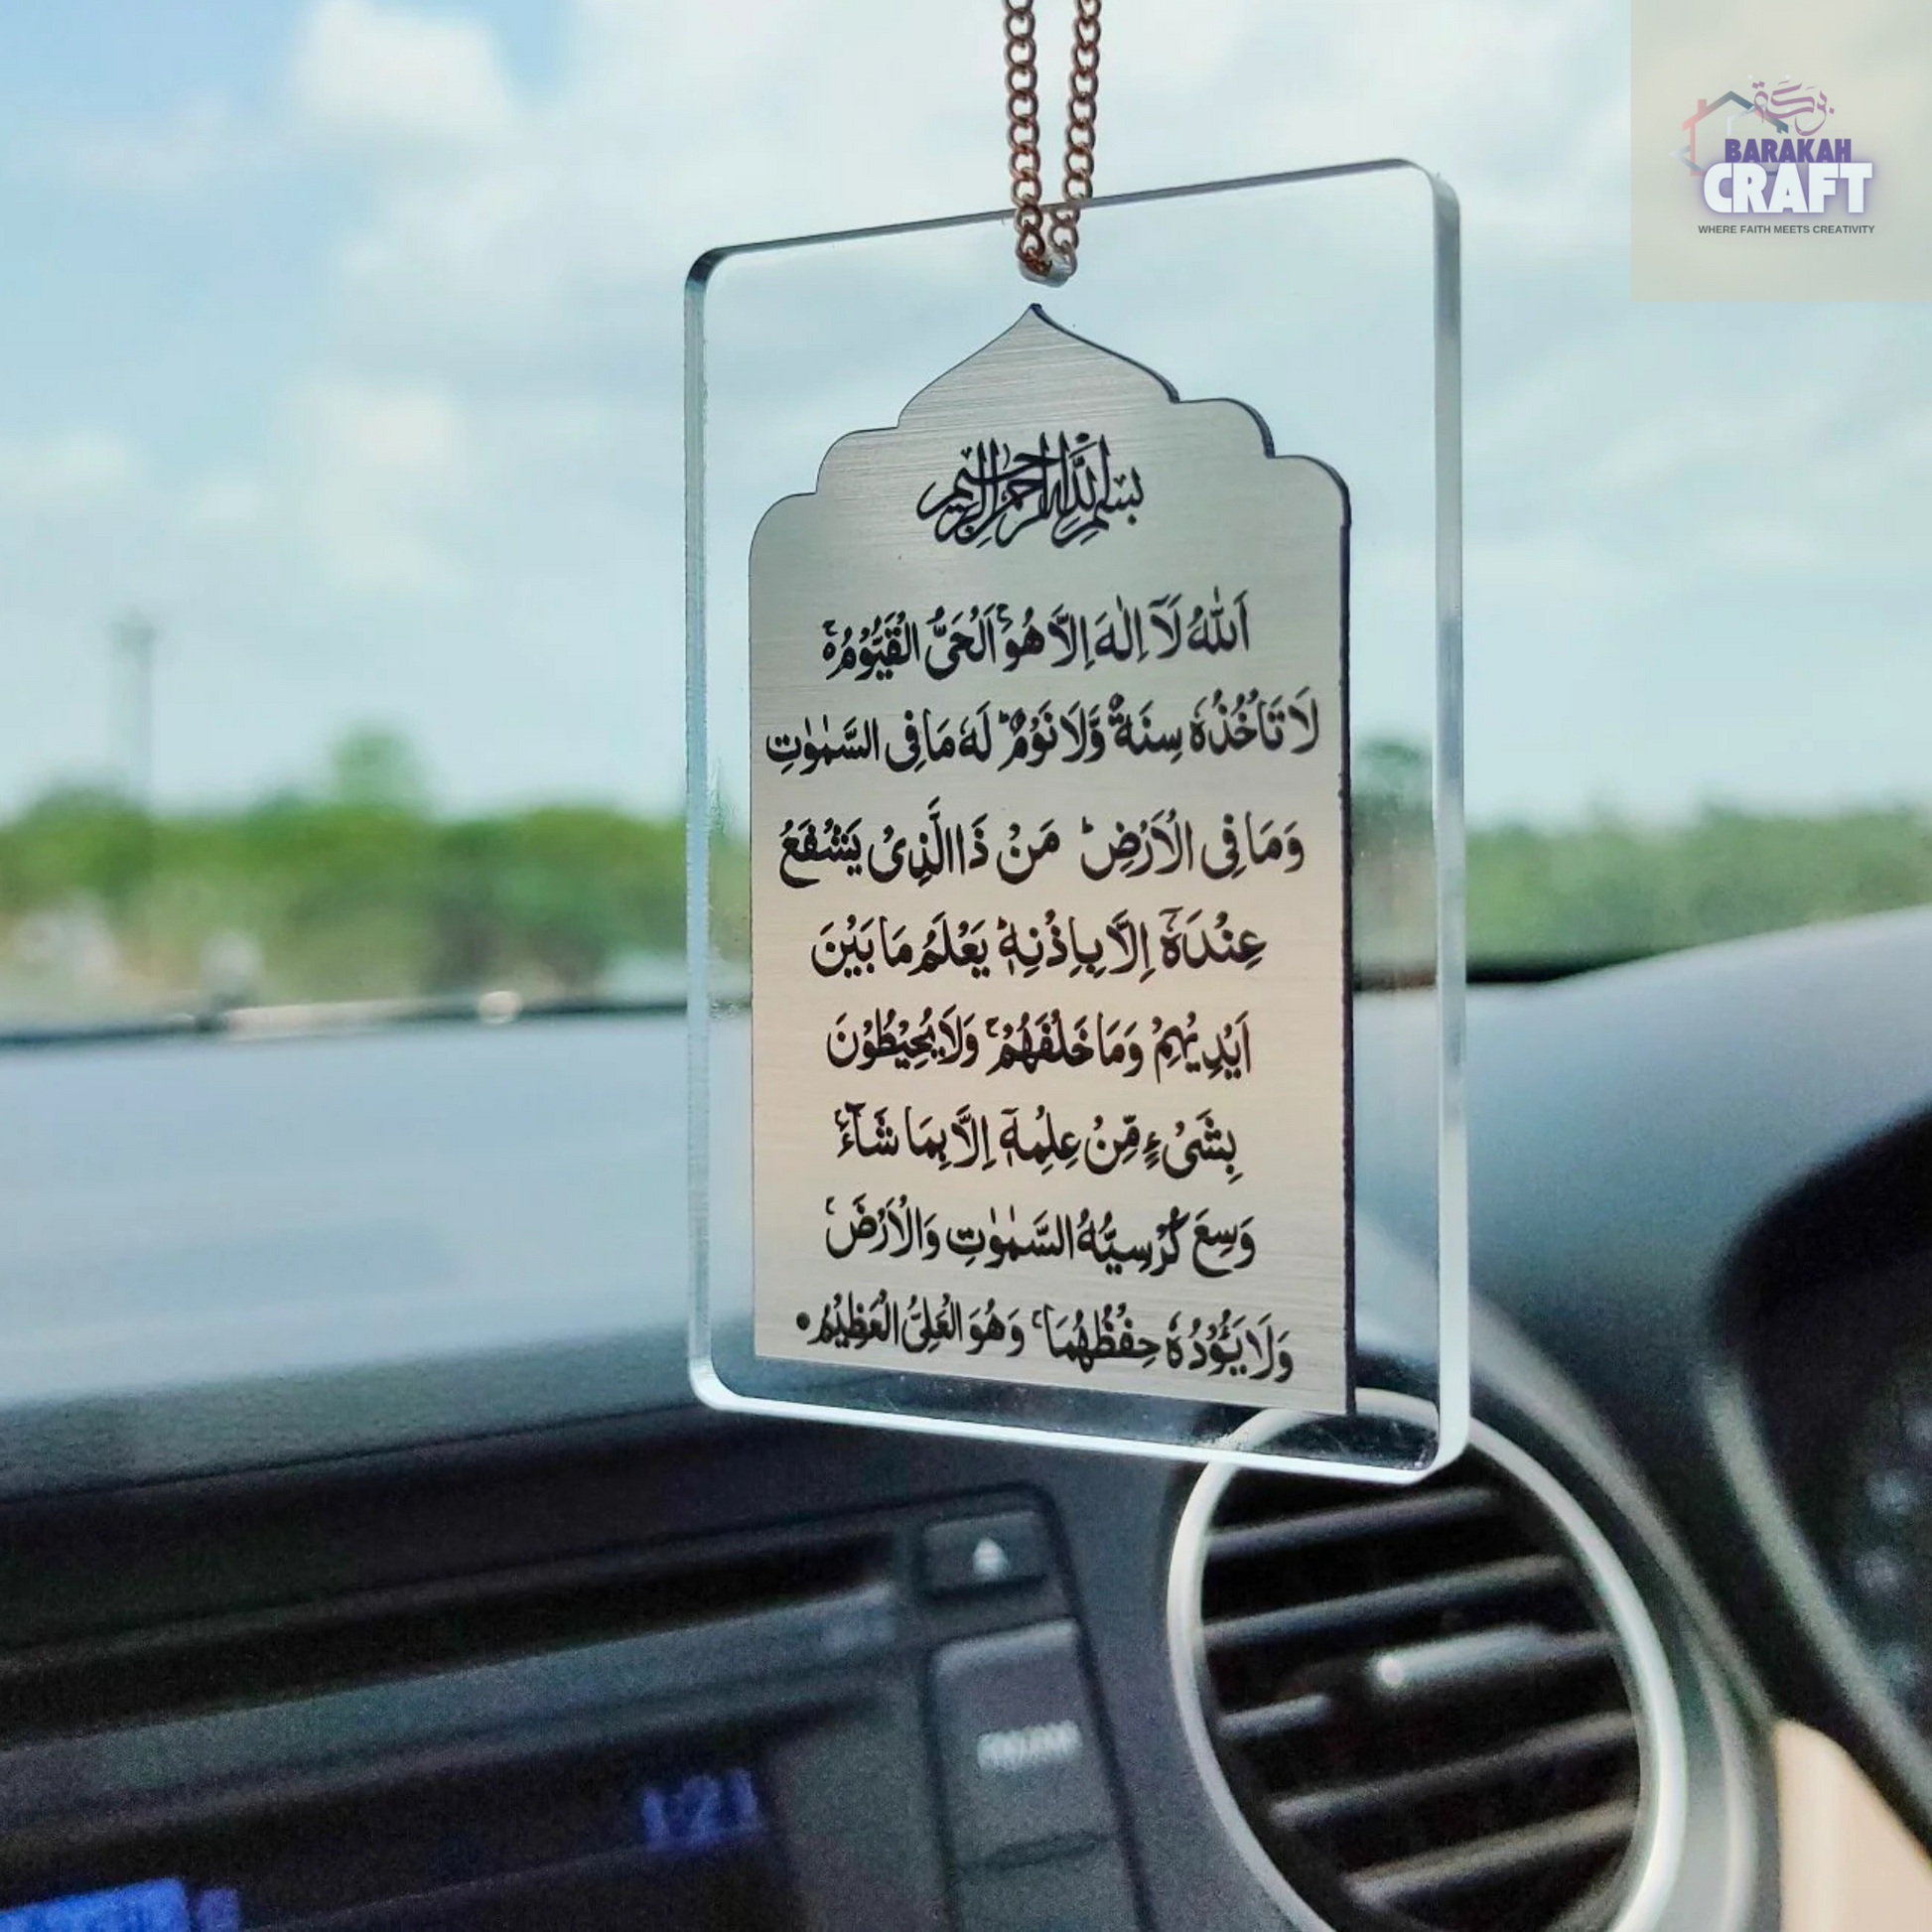 بركة
BARAKAH
CRAFT
WHERE FAITH MEETS CREATIVITY
بسم الله الرحمن الرحيم
اَللّٰهُ لَآ اِلٰهَ اِلَّا هُوَۚ اَلْحَیُّ الْقَیُّوْمُ۬ۚ
لَا تَاْخُذُهٗ سِنَةٌ وَّلَا نَوْمٌؕ لَهٗ مَا فِی السَّمٰوٰتِ
وَمَا فِی الْاَرْضِؕ مَنْ ذَا الَّذِیْ یَشْفَعُ
عِنْدَهٗۤ اِلَّا بِاِذْنِهٖؕ یَعْلَمُ مَا بَیْنَ
اَیْدِیْهِمْ وَمَا خَلْفَهُمْۚ وَلَا یُحِیْطُوْنَ
بِشَیْءٍ مِّنْ عِلْمِهٖۤ اِلَّا بِمَا شَآءَۚ
وَسِعَ كُرْسِیُّهُ السَّمٰوٰتِ وَالْاَرْضَۚ
وَلَا یَـُٔوْدُهٗ حِفْظُهُمَاۚ وَهُوَ الْعَلِیُّ الْعَظِیْمُ
1:21